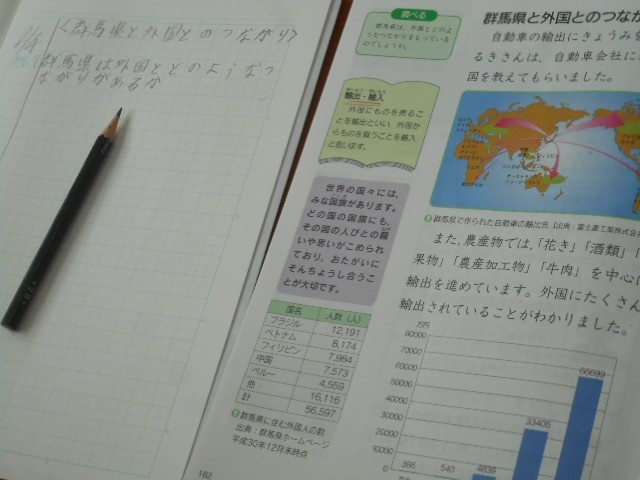 〈群馬県と外国とのつながり〉
群馬県は外国とどのようなつ
ながりがあるか
調べる
群馬県は、外国とどのよ
うなつながりをもっている
のでしょうか。
輸出・輸入
外国にものを売るこ
とを輸出といい、外国か
らものを買うことを輸入
と言います。
世界の国々には、
みな国旗があります。
どの国の国旗にも、
その国の人びとの願
いや思いがこめられ
ており、おたがいに
そんちょうし合うこ
とが大切です。
国名 人数（人）
ブラジル 12,191
ベトナム 8,174
フィリピン 7,984
中国 7,573
ペルー 4,559
他 16,116
計 56,597
群馬県に住む外国人の数
出典：群馬県ホームページ
平成30年12月末時点
182
群馬県と外国とのつなが
自動車の輸出にきょうみを
るきさんは、自動車会社に
国を教えてもらいました。
群馬県で作られた自動車の輸出先（出典：富士重工業株式会
また、農産物では、「花き」「酒類」「
果物」「農産加工物」「牛肉」を中心に
輸出を進めています。外国にたくさん
輸出されていることがわかりました。
万円
80000
70000
60000
50000
40000
30000
20000
10000
0
386
540
4839
33405
66699